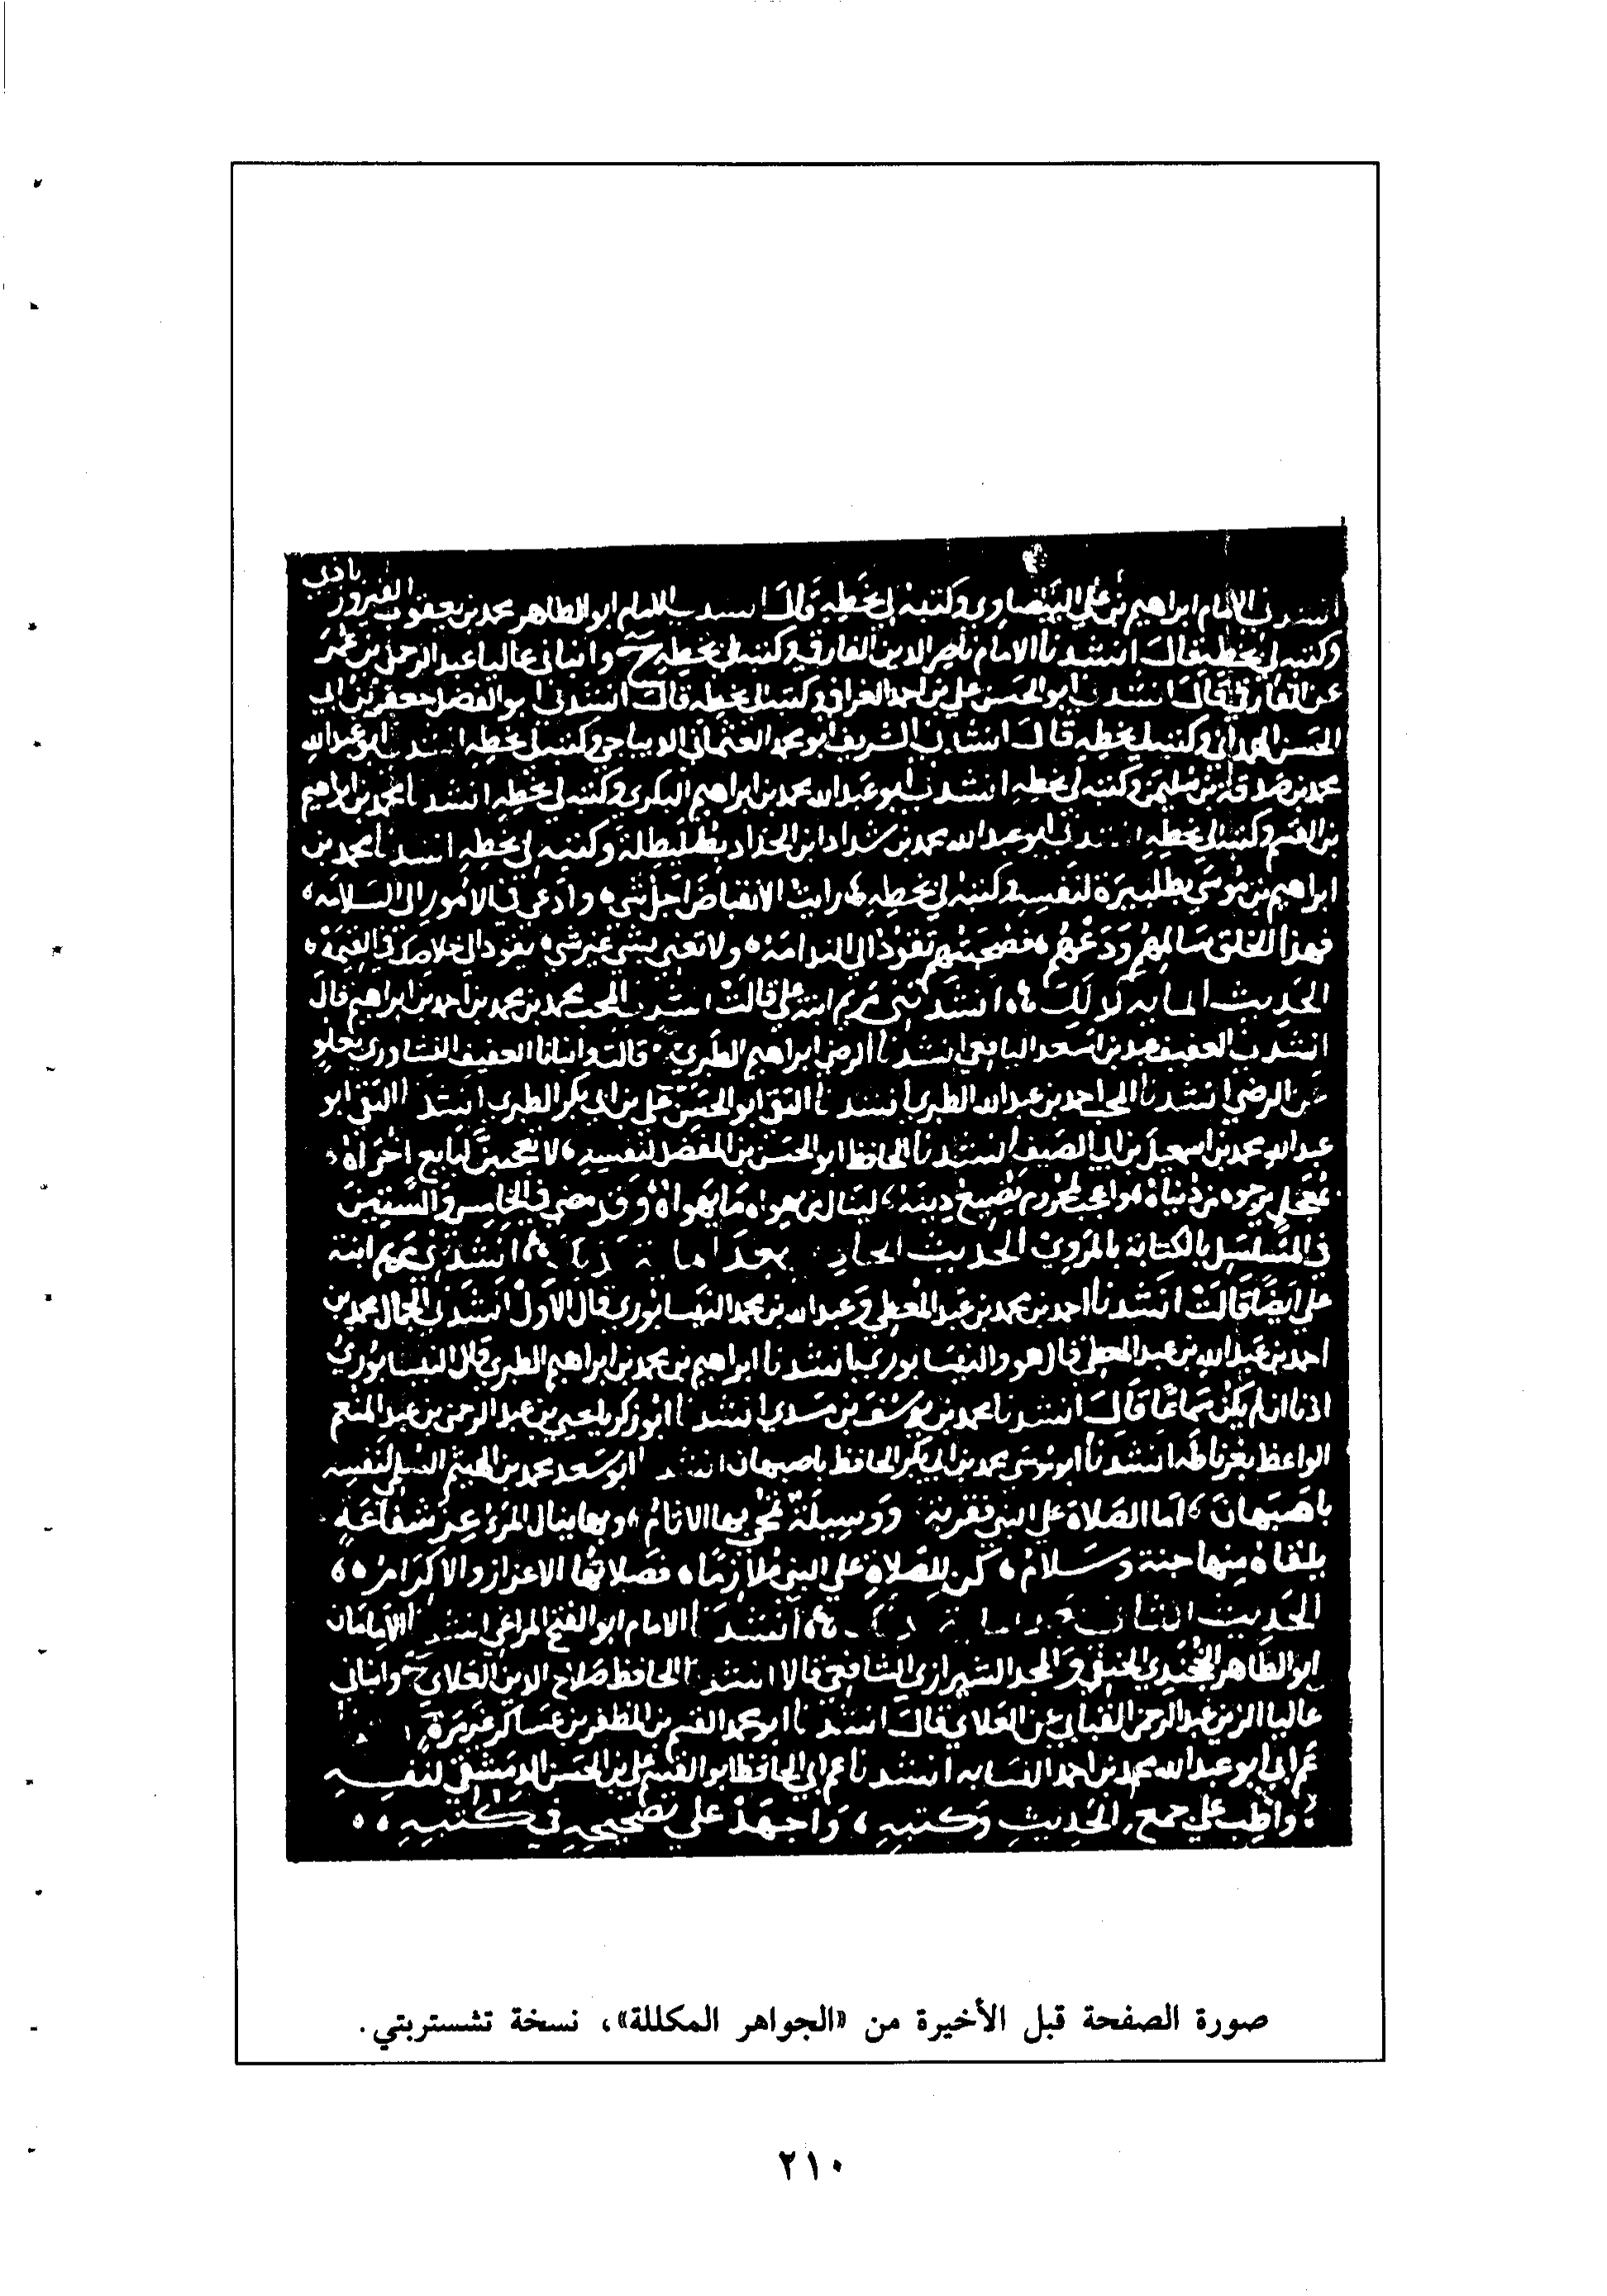 باذي
انشدنا الامام ابراهيم بن علي البيضاوي وكتبه لي بخطه قال انشدنا الامام ابو الطاهر محمد بن يعقوب الفيروز
وكتبه لي بخطه قال انشدنا الامام ناصر الدين الفارقي وكتبه لي بخطه ح وانباني عاليا عبد الرحمن بن عمر
عن الفارقي قال انشدنا ابو الحسن علي بن احمد الغرافي وكتبه لي بخطه قال انشدني ابو الفضل جعفر بن ابي
الحسن الهمداني وكتبه لي بخطه قال انشدني الشريف ابو محمد العثماني الديباجي وكتبه لي بخطه انشدني ابو عبد الله
محمد بن صدقة بن سليمن وكتبه لي بخطه انشدني ابو عبد الله محمد بن ابراهيم البكري وكتبه لي بخطه انشدنا محمد بن ابراهيم
بن القسم وكتبه لي بخطه انشدني ابو عبد الله محمد بن شداد ابن الحداد بطليطلة وكتبه لي بخطه انشدنا محمد بن
ابراهيم بن موسى بطلبيرة لنفسه وكتبه لي بخطه رايت الانقباض اجل شيء وادعى في الامور الى السلامه
فهذا الخلق سالمهم ودعهم فصحبتهم تقود الى الندامه ولا تعنى بشي غير شي يقود الى خلاصك في القيمه
الحديث المايه كذلك انشدتني مريم ابنة علي قالت انشدنا المحب محمد بن محمد بن احمد بن ابراهيم قال
انشدنا العفيف عبد بن اسعد اليافعي انشدنا الرضي ابراهيم الطبري قالت وانبانا العفيف النشاوري بعلو
عن الرضي انشدنا المحب احمد بن عبد الله الطبري انشدنا التقي ابو الحسن علي بن ابي بكر الطبري انشدنا التقي ابو
عبد الله محمد بن اسمعيل بن ابي الصيف انشدنا الحافظ ابو الحسن بن المفضل لنفسه لا تعجبن لبايع اخراه
بمعجل يرجوه من دنياه واعجب لمحروم يضيع دينه لينال من سواه ما يهواه وقد مضى في الخامس والستين
في المسلسل بالكتابة بالمروي الحديث الحادي بعد المايه كذلك انشدتني مريم ابنة
علي ايضا قالت انشدنا احمد بن محمد بن عبد المعطي وعبد الله بن محمد النيسابوري قال الاول انشدني الجمال محمد بن
احمد بن عبد الله بن عبد المعطي قال هو والنيسابوري انشدنا ابراهيم بن محمد بن ابراهيم الطبري قال النيسابوري
اذنا ان لم يكن سماعا قال انشدنا محمد بن يوسف بن مسدي انشدنا ابو زكريا يحيى بن عبد الرحمن بن عبد المنعم
الواعظ بغرناطه انشدنا ابو موسى محمد بن ابي بكر الحافظ باصبهان انشدنا ابو سعد محمد بن الهيثم السلمي لنفسه
باصبهان اما الصلاة على النبي فقربة ووسيلة تمحى بها الاثام وبها ينال المرء عز شفاعة
يلقاه منها جنة وسلام كن للصلاة على النبي ملازما فصلاتها الاعزاز والاكرام
الحديث الثاني بعد المايه كذلك انشدنا الامام ابو الفتح المراغي انشدنا الامامان
ابو الطاهر الخجندي الحنفي والمجد الشيرازي الشافعي قالا انشدنا الحافظ صلاح الدين العلاي ح وانباني
عاليا الزين عبد الرحمن القبابي عن العلاي قال انشدنا ابو محمد القسم بن المظفر بن عساكر غير مرة
عم ابي ابو عبد الله محمد بن احمد النسابه انشدنا عم ابي الحافظ ابو القسم علي بن الحسن الدمشقي لنفسه
واظب على جمع الحديث وكتبه واجهد على تصحيحه في كتبه
صورة الصفحة قبل الأخيرة من «الجواهر المكللة»، نسخة تشستربتي.
٢١٠